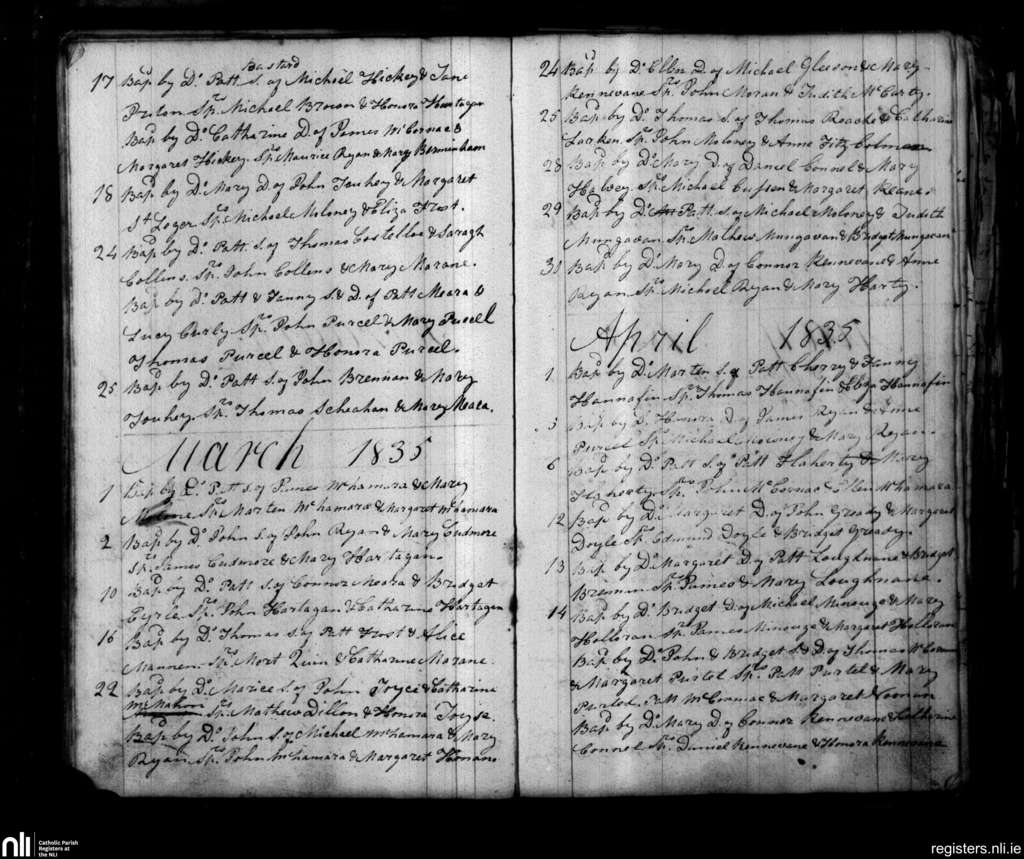 Bastard
17 Bap.d by D.o Patt S. of Michael Hickey & Jane
Sp.rs Michael Brown & Honora Hartagan
Bap.d by D.o Catharine D. of James McCormac &
Margaret Hickey. Sp.rs Maurice Ryan & Mary Bermingham
18 Bap.d by D.o Mary D. of John Touhey & Margaret
St Leger Sp.rs Michael Moloney & Eliza Frost.
24 Bap.d by D.o Patt. S. of Thomas Costelloe & Saragh
Collins. Sp.rs John Collens & Mary Marane.
Bap.d by D.o Patt & Fanny S. & D. of Patt Meara &
Lucy Curly Sp.rs John Purcel & Mary Purcell
Thomas Purcel & Honora Purcel.
25 Bap.d by D.o Patt S. of John Brennan & Mary
Touhey. Sp.rs Thomas Scheahan & Mary Meara.
March 1835
1 Bap.d by D.o Patt S. of James McNamara & Mary
Sp.rs Morten McNamara & Margaret McNamara
2 Bap.d by D.o John S. of John Ryan & Mary Cudmore
Sp.rs James Cudmore & Mary Hartagan.
10 Bap.d by D.o Patt S. of Connor Meara & Bridget
Sp.rs John Hartagan & Catharine Hartagan
16 Bap.d by D.o Thomas S. of Patt Frost & Alice
Sp.rs Mort Quin & Catharine Marane.
22 Bap.d by D.o Morice S. of John Joyce & Catharine
McMahon
Sp.rs Mathew Dillon & Honora Joyse.
Bap.d by D.o John S. of Michael McNamara & Mary
Ryan Sp.rs John McNamara & Margaret Honans
24 Bap.d by D.o Ellen D. of Michael Gleeson & Mary
Kennevane Sp.rs John Moran & Judith McCarty.
25 Bap.d by D.o Thomas S. of Thomas Roache & Catharine
Larken Sp.rs John Moloney & Anne
28 Bap.d by D.o Mary D. of Daniel Connol & Mary
Halvey. Sp.rs Michael Cussen & Margaret Keane.
29 Bap.d by D.o Patt. S. of Michael Moloney & Judith
Mungavan Sp.rs Mathew Mungavan & Bridget Mungavan
30 Bap.d by D.o Mary D. of Connor Kennevane & Anne
Ryan Sp.rs Michael Ryan & Mary Harty.
April 1835
1 Bap.d by D.o Morten S. of Patt Cherry & Fanney
Hannafin Sp.rs Thomas Hannafin & Eliza Hannafin
5 Bap.d by D.o Honora D. of James Ryan & Anne
Purcel Sp.rs Michael & Mary Ryan.
6 Bap.d by D.o Patt S. of Patt Flaherty & Mary
Flaherty Sp.rs John McCormac & Ellen McNamara
12 Bap.d by D.o Margaret D. of John Gready & Margaret
Doyle Sp.rs Edmund Doyle & Bridget Gready.
13 Bap.d by D.o Margaret D. of Patt Loughnane & Bridget
Brennan Sp.rs James & Mary Loughnane.
14 Bap.d by D.o Bridget D. of Michael Minouge & Mary
Holloran Sp.rs James Minouge & Margaret Holloran
Bap.d by D.o John & Bridget S. & D. of Thomas
& Margaret Purtel Sp.rs Patt Purtel & Mary
Purtel. Patt McCormac & Margaret
Bap.d by D.o Mary D. of Connor Kennevane & Catherine
Connel Sp.rs Daniel Kennevane & Honora Kennevane
nli Catholic Parish
Registers at
the NLI
registers.nli.ie